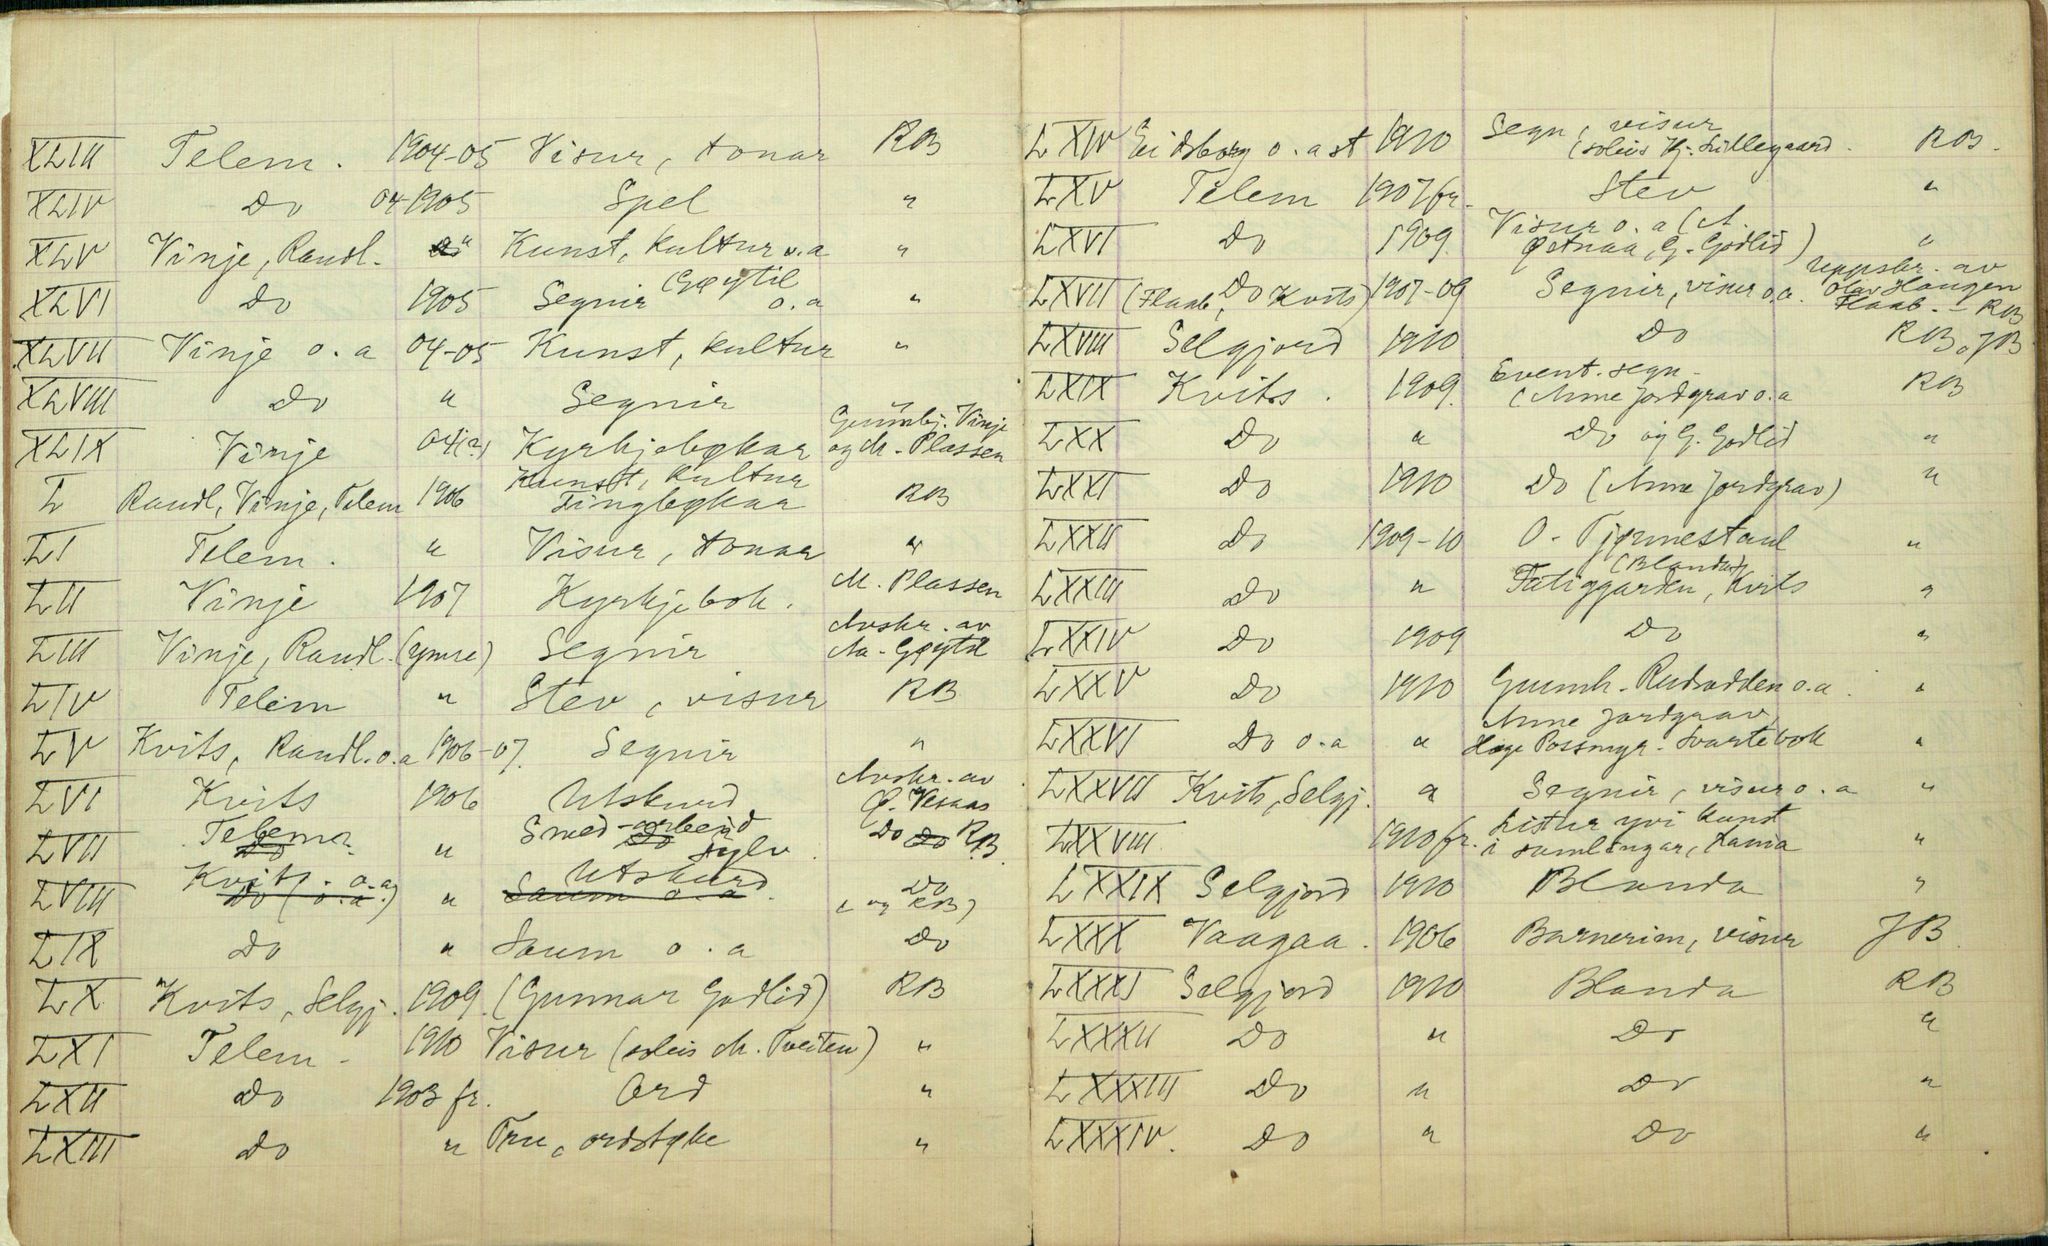 XLIII Telem. 1904-05 Visur, tonar RB
XLIV Do 04-1905 Spel "
XLV Vinje, Raudl. " Kunst, kultur o.a "
XLVI Do 1905 Segnir (Gøytil o.a "
XLVII Vinje o.a 04-05 Kunst, kultur "
XLVIII Do " Segnir "
XLIX Vinje 04(?) Kyrkjebøkar Gunnbj. Vinje og M. Plassen
L Raudl, Vinje, Telem 1906 Kunst, kultur Tingbøkar RB
LI Telem. " Visur, tonar "
LII Vinje 1907 Kyrkjebok. M. Plassen
LIII Vinje, Raudl. (ymse) Segnir Avskr. av Aa. Gøytil
LIV Telem " Stev, visur RB
LV Kvits, Raudl. o.a 1906-07. Segnir "
LVI Kvits 1906 Utskurd Avskr. av Ø. Vesaas
LVII Telema. Do " Smed-arbeid Do sylv. Do Do RB
LVIII Kvits. o.a Do (o.a.) " Utskurd Saum o.a. Do (og RB)
LIX Do " Saum o.a Do
LX Kvits, Selgj. 1909. (Gunnar Godlid) RB
LXI Telem. 1910 Visur (soleis M. Tveiten) "
LXII Do 1903 fr. Ord "
LXIII Do " Tru, ordstøke "
LXIV Eidsborg o. a st 1910 Segn, visur (soleis Hj. Lillegaard. RB.
LXV Telem 1907 fr. Stev "
LXVI Do 1909. Visur o.a (A. Øatnaa, G. Godlid) "
LXVII (Flaab, Do Kvits) 1907-09 Segnir, visur o.a. Uppskr. av Olav Haugen Flaab. - RB
LXVIII Selgjord 1910 Do RB, JB
LXIX Kvits. 1909. Event. segn. (Anne Jordgrav o.a RB
LXX Do " Do og G. Godlid "
LXXI Do 1910 Do (Anne Jordgrav) "
LXXII Do 1909-10 O. Tjønnestaul "
LXXIII Do " (Blanda) Fatiggarden, Kvits "
LXXIV Do 1909 Do "
LXXV Do 1910 Gunnh. Rudsodden o.a. "
LXXVI Do o.a " Anne Jordgrav, Hæge Possmyr. Svartebok "
LXXVII Kvits, Selgj. " Segnir, visur o.a "
LXXVIII 1910 fr. Listur yvi kunst i samlingar, Rania "
LXXIX Selgjord 1910 Blanda "
LXXX Vaagaa. 1906 Barnerim, visur JB.
LXXXI Selgjord 1910 Blanda RB
LXXXII Do " Do "
LXXXIII Do " Do "
LXXXIV. Do " Do "